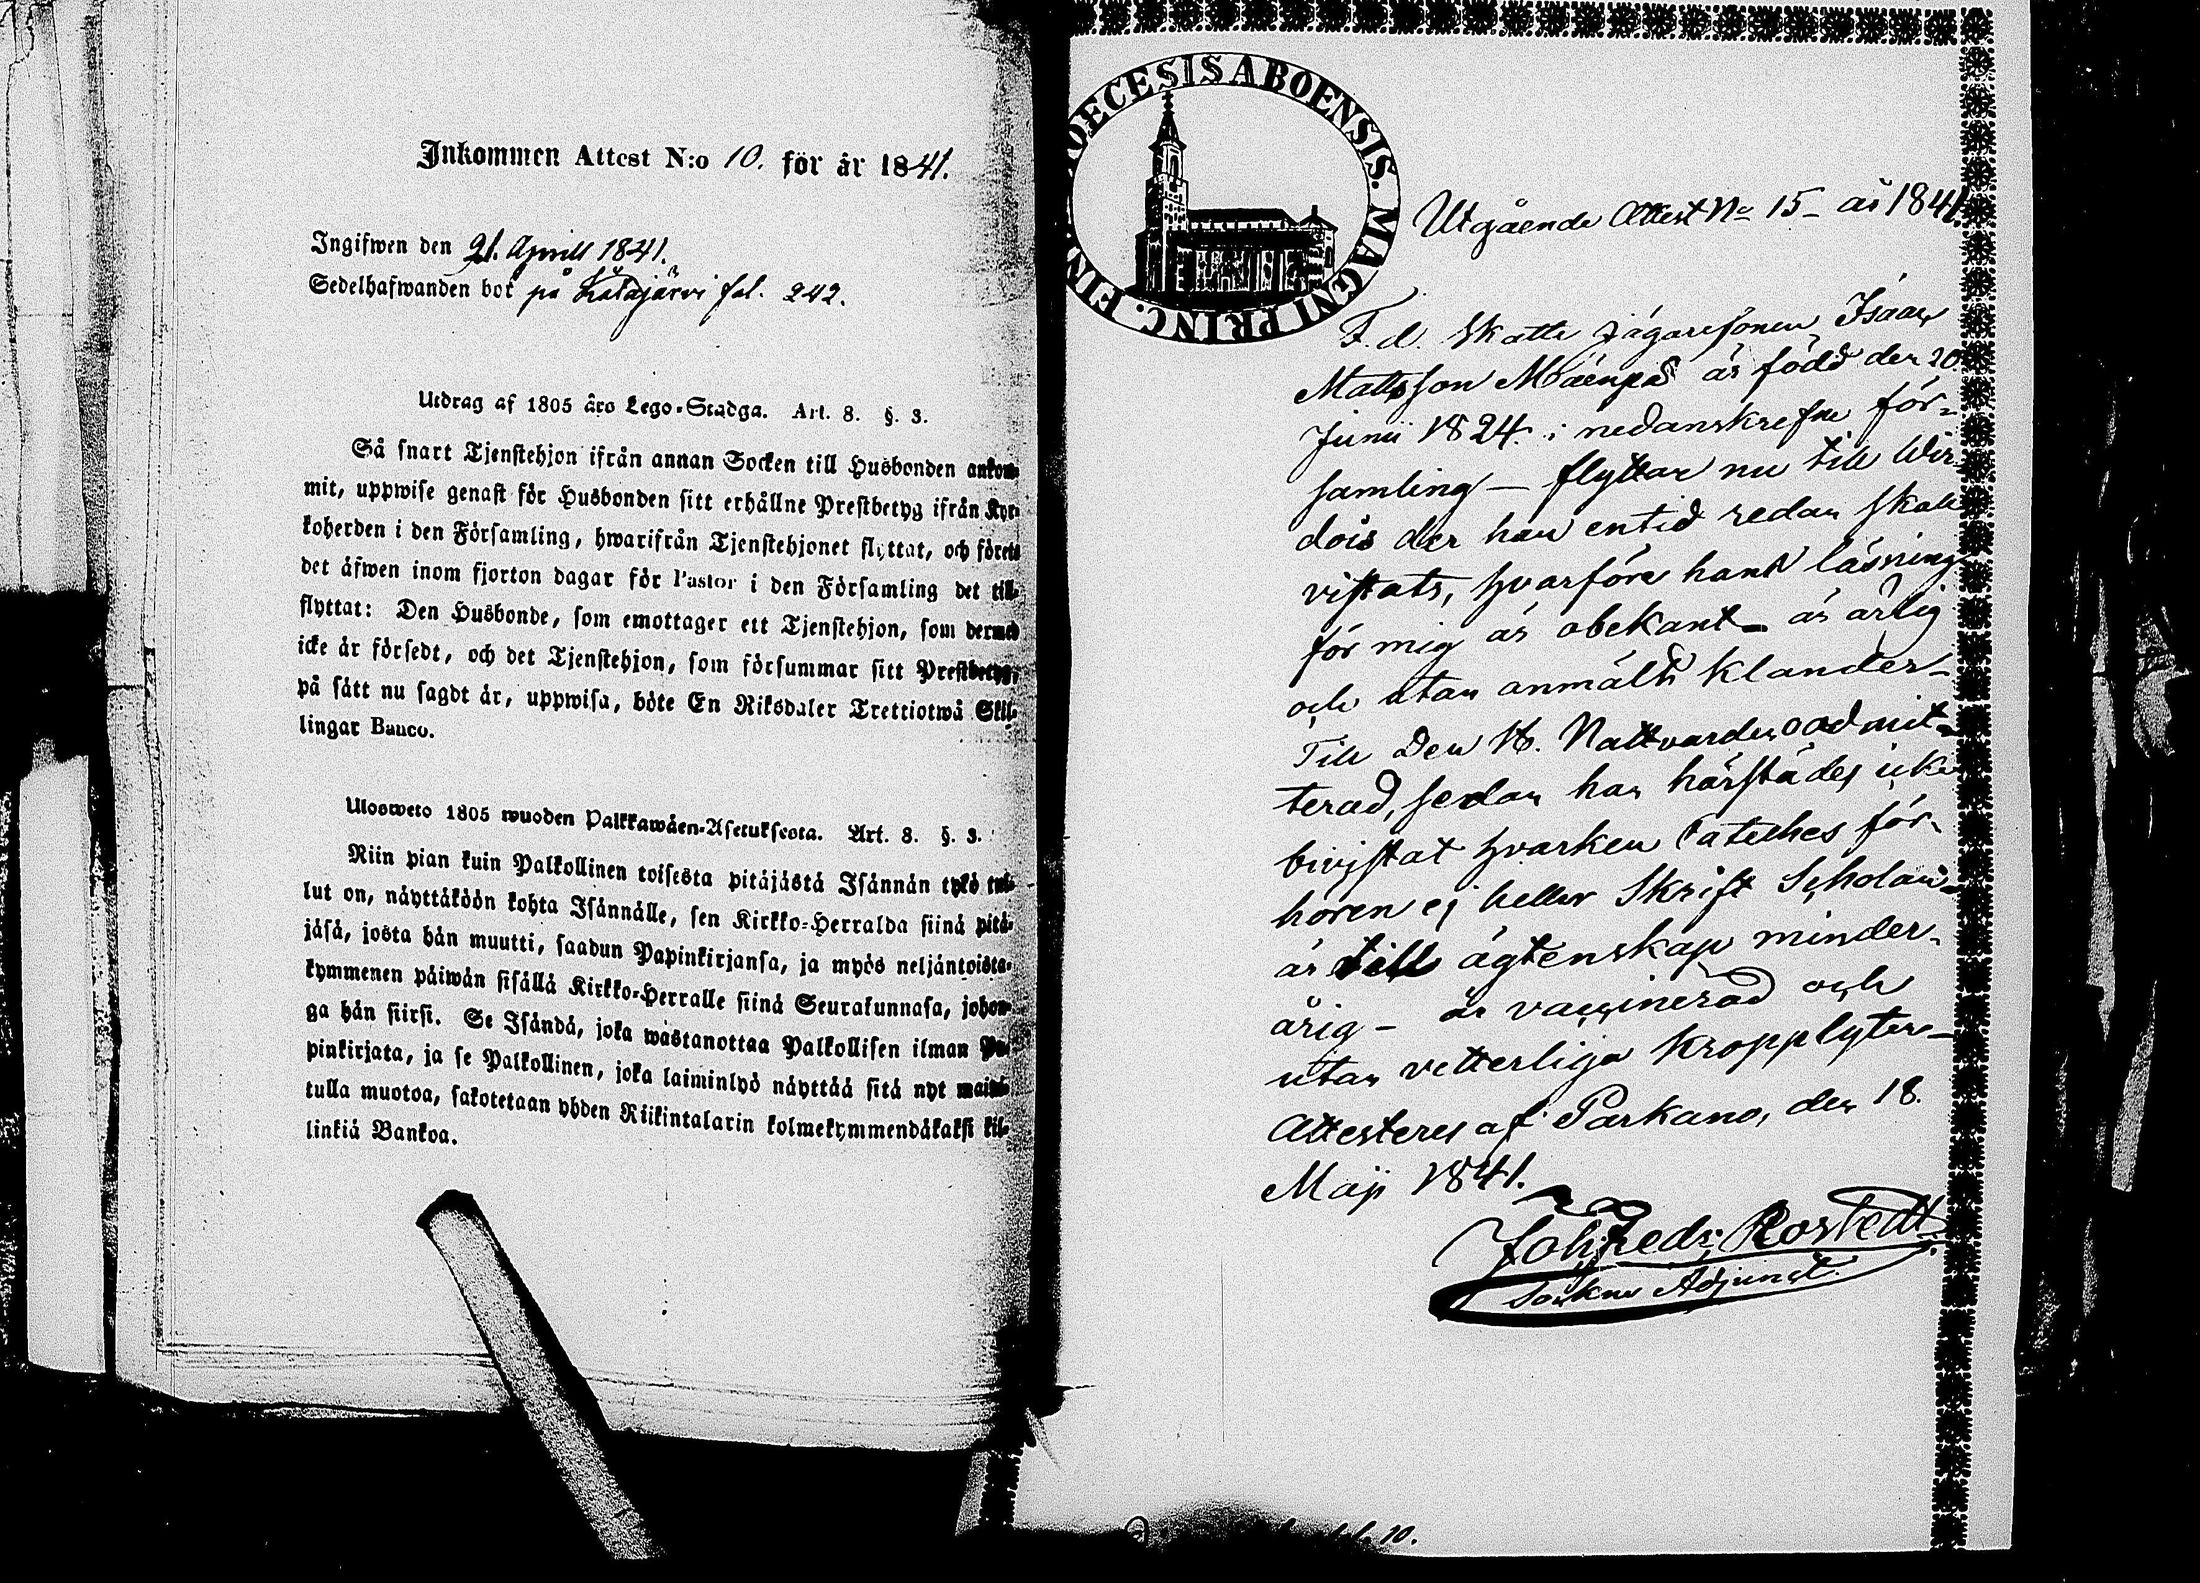 Inkommen Attest N:o 10. för år 1841.
Ingifwen den 21. Aprill 1841.
Sedelhafwanden bor på Kätkäjärvi fol. 242.
Utdrag af 1805 års Lego-Stadga. Art. 8. §. 3.
Så snart Tjenstehjon ifrån annan Socken till Husbonden ankom-
mit, uppwise genast för Husbonden sitt erhållne Prestbetyg ifrån Kyr-
koherden i den Församling, hwarifrån Tjenstehjonet flyttat, och förete
det äfwen inom fjorton dagar för Pastor i den Församling det till-
flyttat: Den Husbonde, som emottager ett Tjenstehjon, som dermed
icke är försedt, och det Tjenstehjon, som försummar sitt Prestbetyg,
på sätt nu sagdt är, uppwisa, böte En Riksdaler Trettiotwå Skil-
lingar Banco.
Ulosweto 1805 wuoden Palkkawäen-Asetuksesta. Art. 8. §. 3.
Niin pian kuin Palkollinen toisesta pitäjästä Isännän tykö tul-
lut on, näyttäköön kohta Isännälle, sen Kirkko-Herralda siinä pitä-
jäsä, josta hän muutti, saadun Papinkirjansa, ja myös neljäntoista-
kymmenen päiwän sisällä Kirkko-Herralle siinä Seurakunnasa, johon-
ga hän siirsi. Se Isändä, joka wastanottaa Palkollisen ilman Pa-
pinkirjata, ja se Palkollinen, joka laiminlyö näyttää sitä nyt mainit-
tulla muotoa, sakotetaan yhden Riikintalarin kolmekymmendäkaksi kil-
linkiä Bankoa.
DIOECESIS ABOENSIS. MAGNI PRINC. FIN
Utgående Attest No 15 - år 1841
F. d. Skatte jägaresonen Isaac
Mattsson Mäenpää är född den 20
Junii 1824. i nedanskrefne för-
samling — flyttar nu till Wir-
dois der han en tid redan skall
vistats, hvarföre hans läsning
för mig är obekant - är ärlig
och utan anmäldt klander -
till Den H. Nattvarden admit-
terad, sedan han härstädes icke
bivistat hvarken Cateches för-
hören ej heller Skrift Scholan
är till ägtenskap minder-
årig - är vaccinerad och
utan vetterliga kropplyten -
Attesteres af Parkano, den 18.
Maji 1841.
Joh: Fredr: Rostedt
Sockne Adjunct.
10.